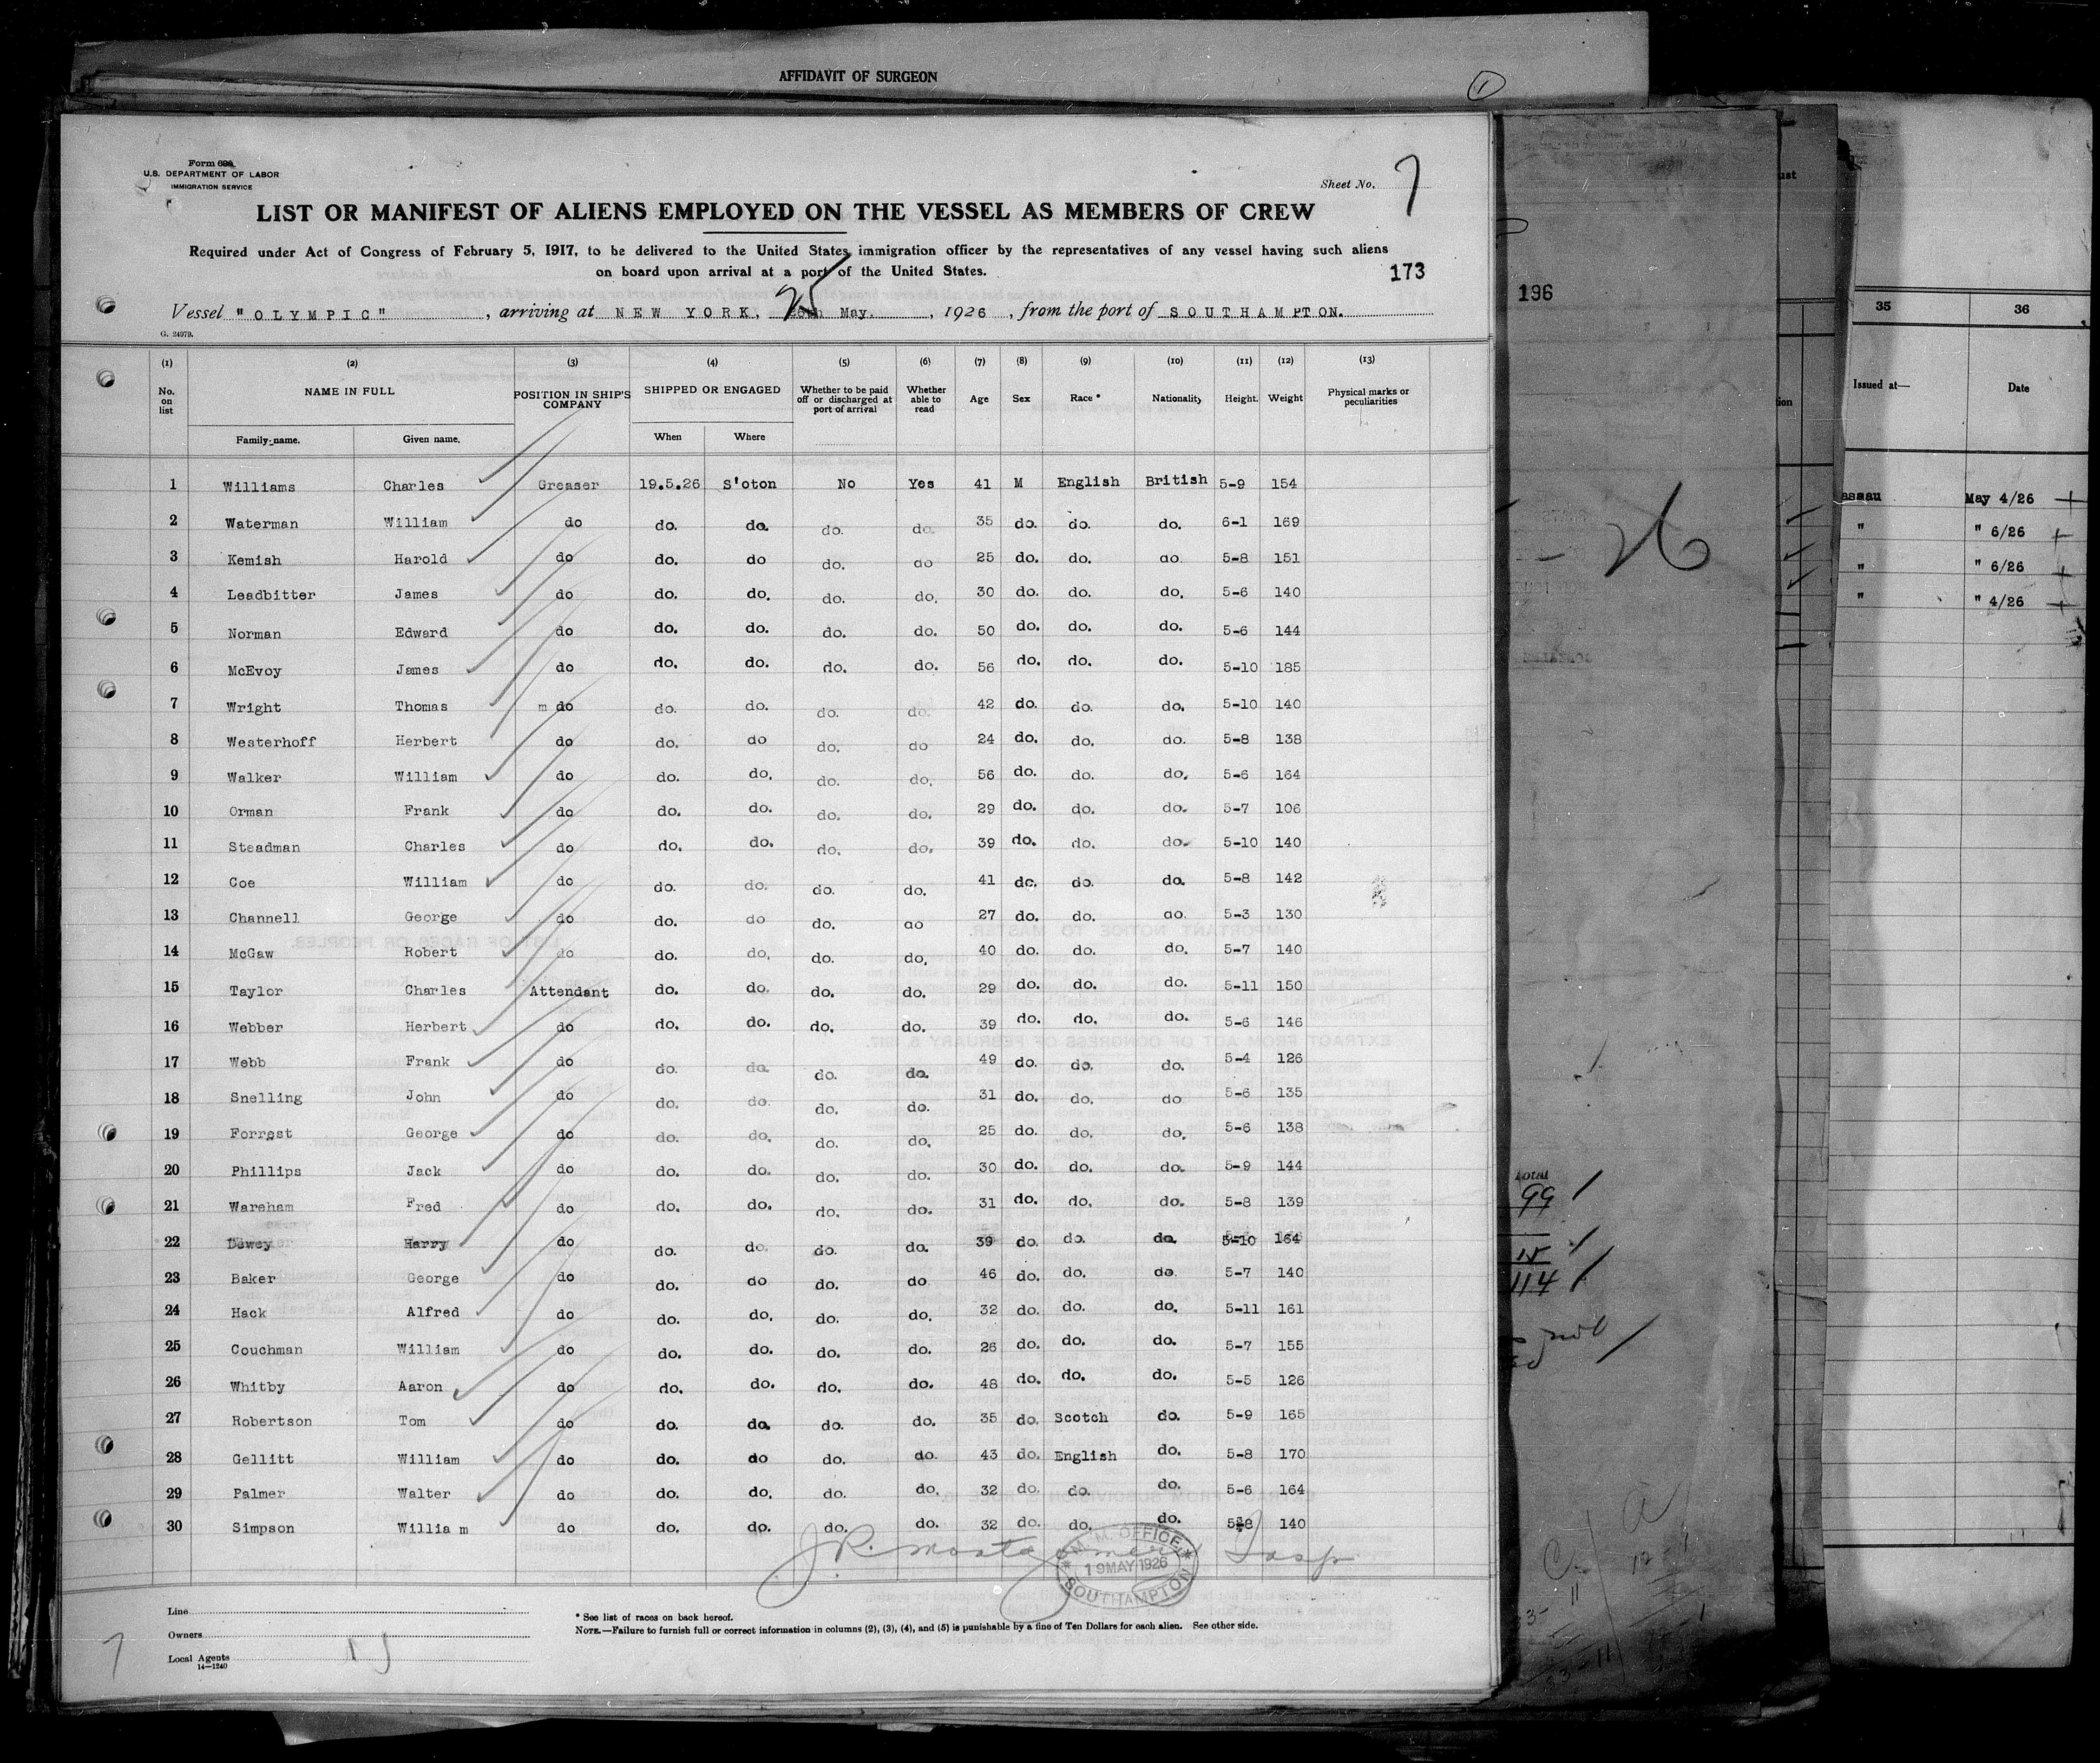 AFFIDAVIT OF SURGEON
1
Form 689
U.S. DEPARTMENT OF LABOR
IMMIGRATION SERVICE
Sheet No. 7
LIST OR MANIFEST OF ALIENS EMPLOYED ON THE VESSEL AS MEMBERS OF CREW
Required under Act of Congress of February 5, 1917, to be delivered to the United States immigration officer by the representatives of any vessel having such aliens
on board upon arrival at a port of the United States.
173
Vessel "OLYMPIC", arriving at NEW YORK, 25 May. , 1926 , from the port of SOUTHAMPTON.
G. 24979.
(1) (2) (3) (4) (5) (6) (7) (8) (9) (10) (11) (12) (13)
No. on list NAME IN FULL POSITION IN SHIP'S COMPANY SHIPPED OR ENGAGED Whether to be paid off or discharged at port of arrival Whether able to read Age Sex Race * Nationality Height. Weight Physical marks or peculiarities
Family-name. Given name. When Where
1 Williams Charles Greaser 19.5.26 S'oton No Yes 41 M English British 5-9 154
2 Waterman William do do. do. do. do. 35 do. do. do. 6-1 169
3 Kemish Harold do do. do do. do 25 do. do. do. 5-8 151
4 Leadbitter James do do. do. do. do. 30 do. do. do. 5-6 140
5 Norman Edward do do. do. do. do. 50 do. do. do. 5-6 144
6 McEvoy James do do. do. do. do. 56 do. do. do. 5-10 185
7 Wright Thomas m do do. do. do. do. 42 do. do. do. 5-10 140
8 Westerhoff Herbert do do. do do. do 24 do. do. do. 5-8 138
9 Walker William do do. do. do. do. 56 do. do. do. 5-6 164
10 Orman Frank do do. do. do. do. 29 do. do. do. 5-7 106
11 Steadman Charles do do. do. do. do. 39 do. do. do. 5-10 140
12 Coe William do do. do. do. do. 41 do. do. do. 5-8 142
13 Channell George do do. do do. do 27 do. do. do. 5-3 130
14 McGaw Robert do do. do. do. do. 40 do. do. do. 5-7 140
15 Taylor Charles Attendant do. do. do. do. 29 do. do. do. 5-11 150
16 Webber Herbert do do. do. do. do. 39 do. do. do. 5-6 146
17 Webb Frank do do. do. do. do. 49 do. do. do. 5-4 126
18 Snelling John do do. do. do. do. 31 do. do. do 5-6 135
19 Forrest George do do. do. do. do. 25 do. do. do. 5-6 138
20 Phillips Jack do do. do. do. do. 30 do. do. do. 5-9 144
21 Wareham Fred do do. do. do. do. 31 do. do. do. 5-8 139
22 Dewey Harry do do. do. do. do. 39 do. do. do. 5-10 164
23 Baker George do do. do do. do 46 do. do. do 5-7 140
24 Hack Alfred do do. do. do. do. 32 do. do. do. 5-11 161
25 Couchman William do do. do. do. do. 26 do. do. do. 5-7 155
26 Whitby Aaron do do. do. do. do. 48 do. do. do. 5-5 126
27 Robertson Tom do do. do. do. do. 35 do. Scotch do. 5-9 165
28 Gellitt William do do. do do. do. 43 do. English do. 5-8 170
29 Palmer Walter do do. do. do. do. 32 do. do. do. 5-6 164
30 Simpson Willia m do do. do. do. do. 32 do. do. do. 5-8 140
J.R. Montgomery Insp
M.M. OFFICE
19 MAY 1926
SOUTHAMPTON
Line
Owners
Local Agents
14—1240
* See list of races on back hereof.
NOTE.—Failure to furnish full or correct information in columns (2), (3), (4), and (5) is punishable by a fine of Ten Dollars for each alien. See other side.
7
196
26
Total
99
15
114
35 36
Issued at— Date
May 4/26
" " 6/26
" " 6/26
" " 4/26